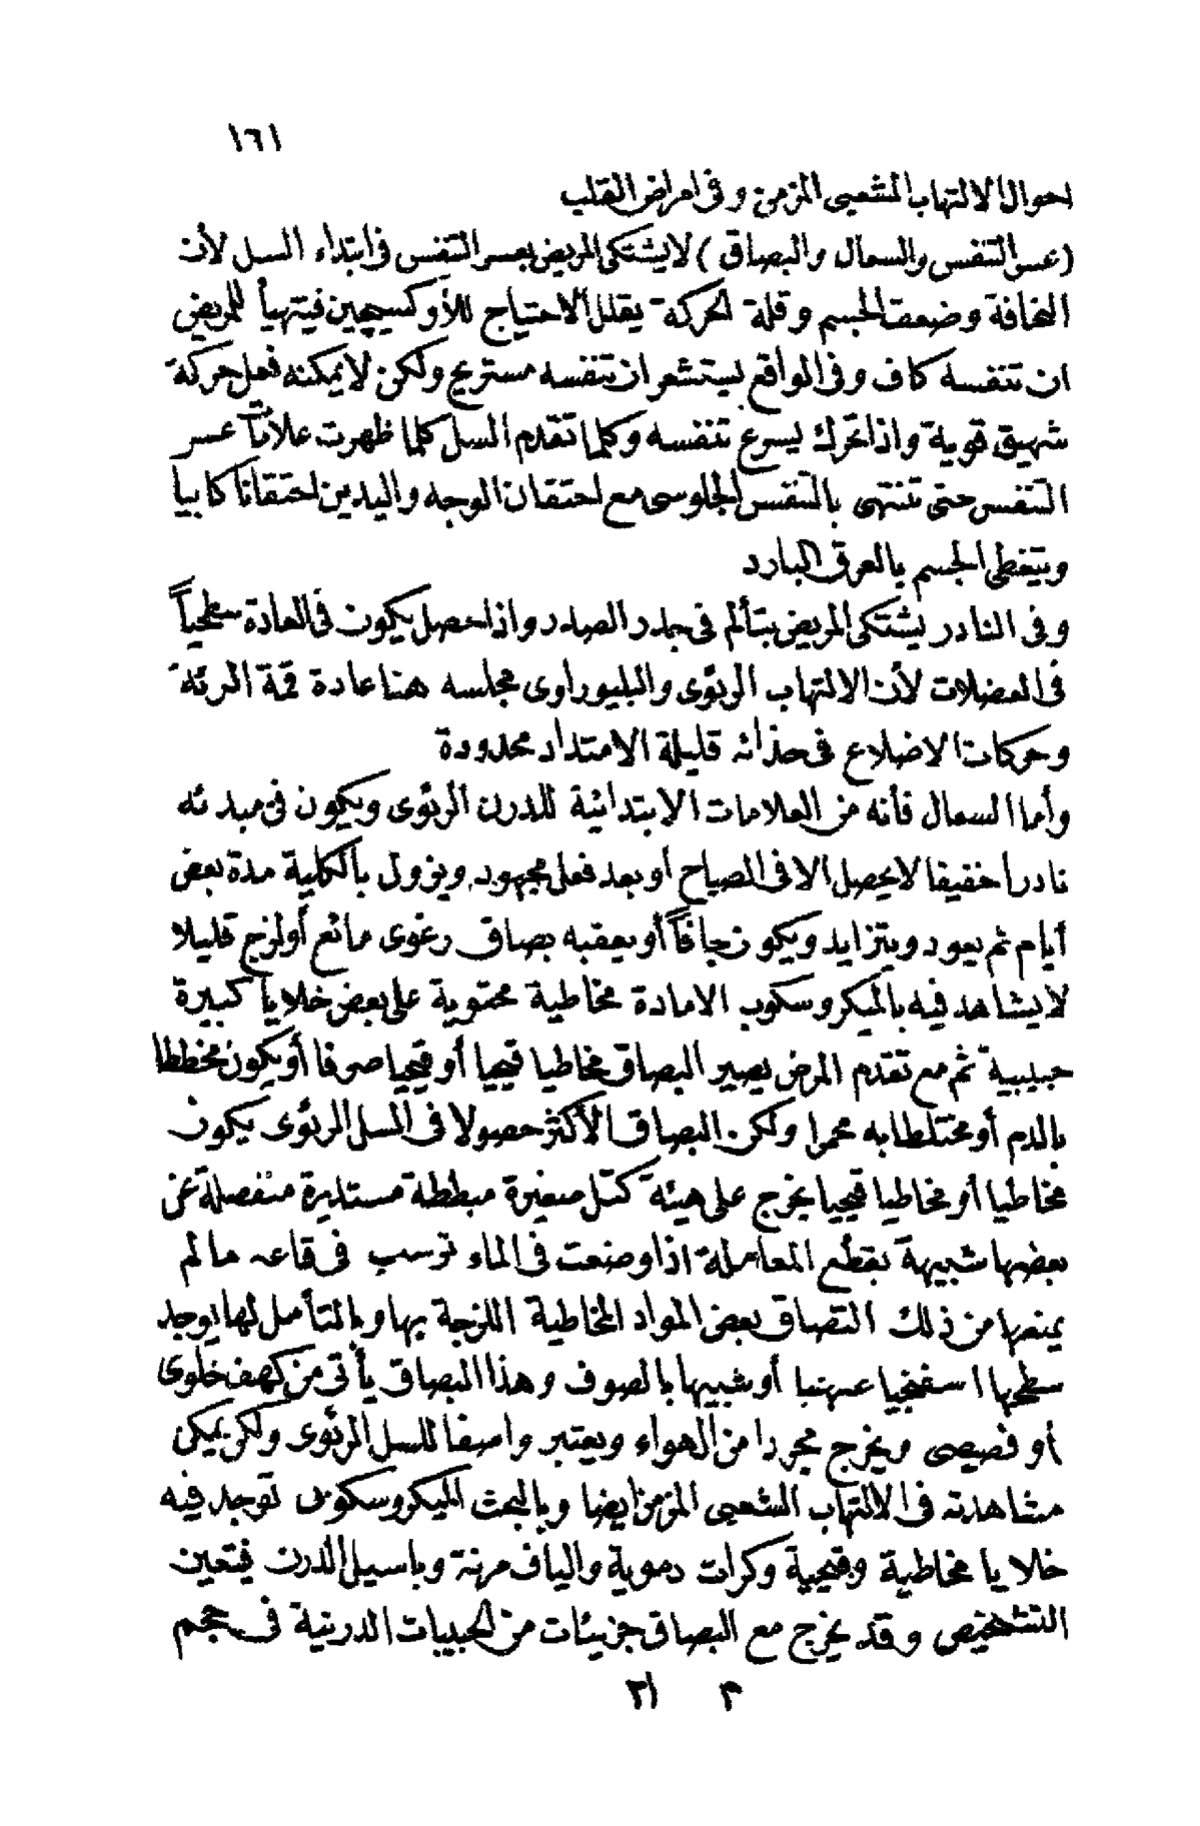 ١٦١
احوال الالتهاب الشعبى المزمن وفى امراض القلب
(عسر التنفس والسعال والبصاق) لا يشتكى المريض بعسر التنفس فى ابتداء السل لأن
النحافة وضعف الجسم وقلة الحركة يقلل الاحتياج للأوكسيچين فيتهيأ للمريض
ان تنفسه كاف وفى الواقع يستشعر ان تنفسه مستريح ولكن لا يمكنه فعل حركة
شهيق قوية واذا تحرك يسرع تنفسه وكلما تقدم السل كلما ظهرت علامات عسر
التنفس حتى تنتهى بالتنفس الجلوسى مع احتقان الوجه واليدين احتقانا كابيا
ويتغطى الجسم بالعرق البارد
وفى النادر يشتكى المريض بتألم فى جدر الصدر واذا حصل يكون فى العادة سطحياً
فى العضلات لأن الالتهاب الرئوى والبليوراوى مجلسه هنا عادة قمة الرئة
وحركات الاضلاع فى حذائه قليلة الامتداد محدودة
وأما السعال فأنه من العلامات الابتدائية للدرن الرئوى ويكون فى مبدئه
نادرا خفيفا لا يحصل الا فى الصباح أو بعد فعل مجهود ويزول بالكلية مدة بعض
أيام ثم يعود ويتزايد ويكون جافاً أو يعقبه بصاق رغوى مائع أو لزج قليلا
لا يشاهد فيه بالميكروسكوب الا مادة مخاطية محتوية على بعض خلايا كبيرة
حبيبية ثم مع تقدم المرض يصير البصاق مخاطيا قيحيا أو قيحيا صرفا أو يكون مخططا
بالدم أو مختلطا به محمرا ولكن البصاق الأكثر حصولا فى السل الرئوى يكون
مخاطيا أو مخاطيا قيحيا يخرج على هيئة كتل صغيرة مبططة مستديرة منفصلة عن
بعضها شبيهة بقطع المعاملة اذا وضعت فى الماء ترسب فى قاعه مالم
يمنعها من ذلك التصاق بعض المواد المخاطية اللزجة بها وبالتأمل لها يوجد
سطحها اسفنجيا عهنيا أو شبيها بالصوف وهذا البصاق يأتى من كهف خلوى
أو فصيصى ويخرج مجردا من الهواء ويعتبر واصفا للسل الرئوى ولكن يمكن
مشاهدته فى الالتهاب الشعبى المزمن ايضا وبالبحث الميكروسكوبى توجد فيه
خلايا مخاطية وقيحية وكرات دموية والياف مرنة وباسيل الدرن فيتعين
التشخيص وقد يخرج مع البصاق جزيئات من الحبيبات الدرنية فى حجم
م ٢١